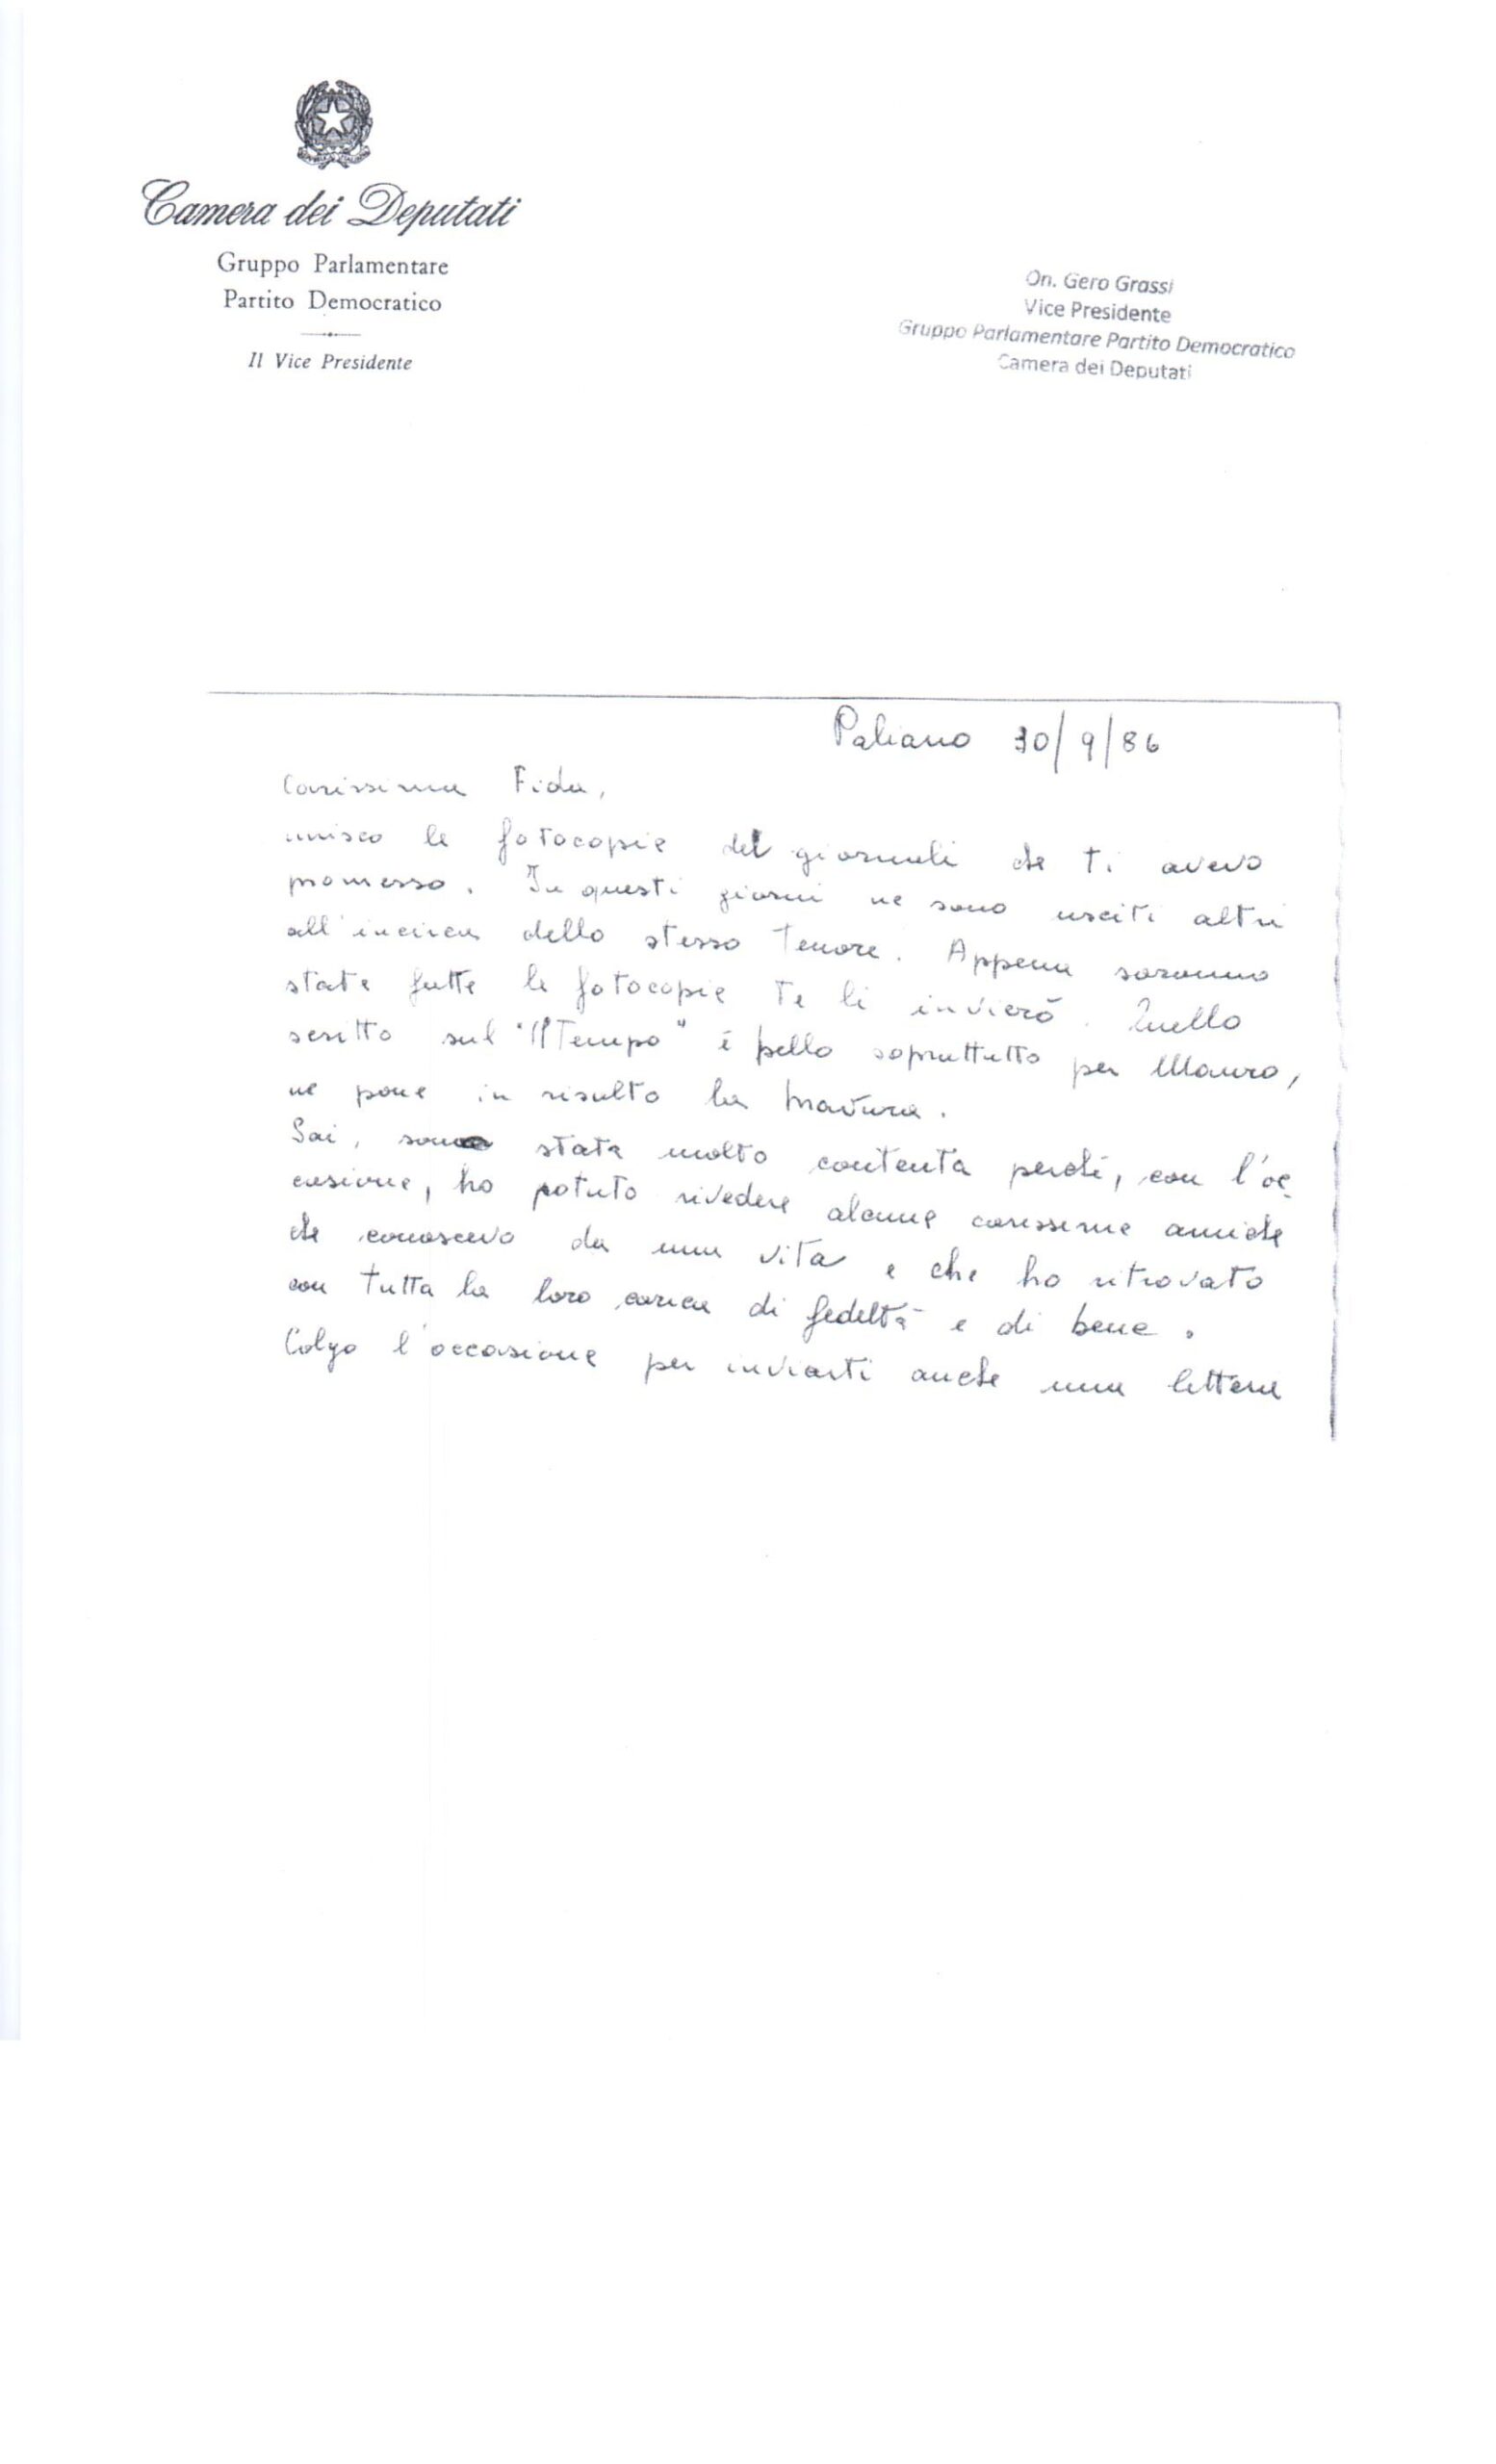 Camera dei Deputati
Gruppo Parlamentare
Partito Democratico
Il Vice Presidente
On. Gero Grassi
Vice Presidente
Gruppo Parlamentare Partito Democratico
Camera dei Deputati
Paliano 30/9/86
Carissima Fida,
unisco le fotocopie del giornali che ti avevo
promesso. In questi giorni ne sono usciti altri
all'incirca dello stesso tenore. Appena saranno
state fatte le fotocopie te li invierò. Quello
scritto sul "Il Tempo" è bello sopruttutto per Mauro,
ne pone in risulto la bravura.
Sai, sono stata molto contenta perché, con l'oc
casione, ho potuto rivedere alcune carissime amiche
che conoscevo da una vita e che ho ritrovato
con tutta la loro carica di fedeltà e di bene.
Colgo l'occasione per inviarti anche una lettera